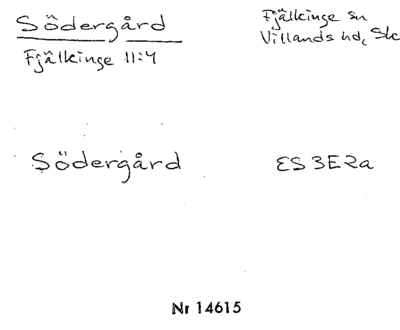 Södergård
Fjälkinge 11:4
Fjälkinge sn
Villands hd, Sk
Södergård
ES 3E2a
Nr 14615